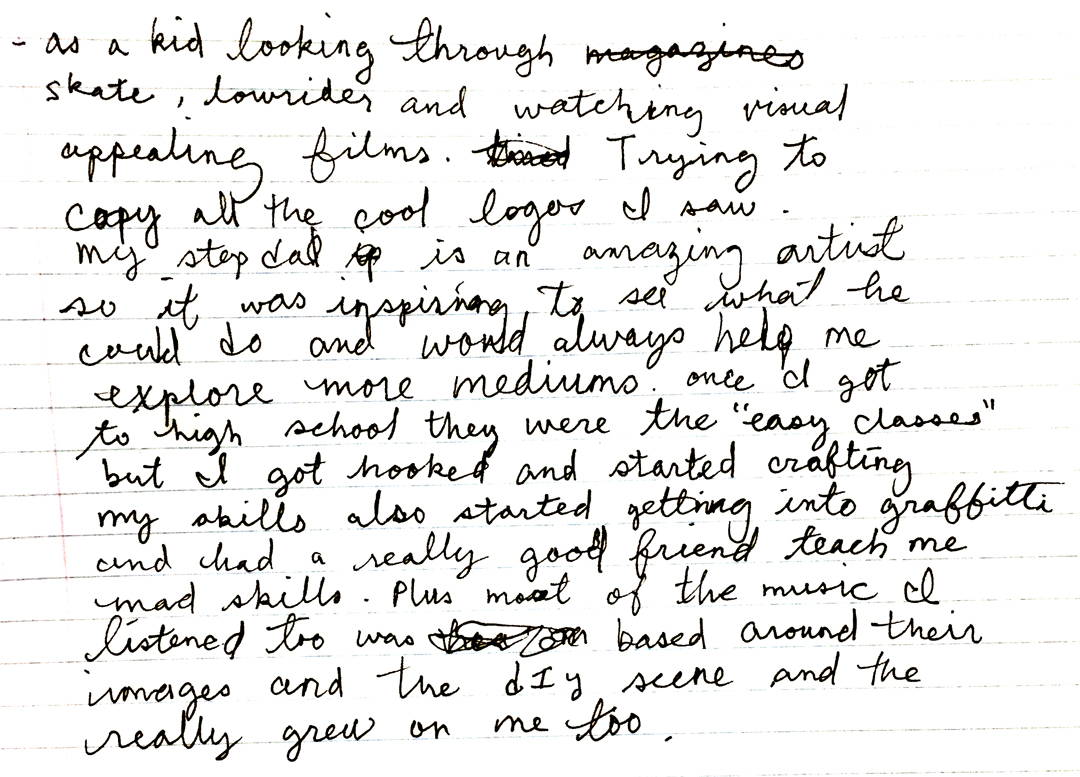 - as a kid looking through magazines
skate, lowrider and watching visual
appealing films. Trying to
copy all the cool logos I saw.
my step dad is an amazing artist
so it was inspiring to see what he
could do and would always help me
explore more mediums. once I got
to high school they were the "easy classes"
but I got hooked and started crafting
my skills also started getting into graffitti
and had a really good friend teach me
mad skills. Plus most of the music I
listened too was based around their
images and the dIy scene and the
really grew on me too.